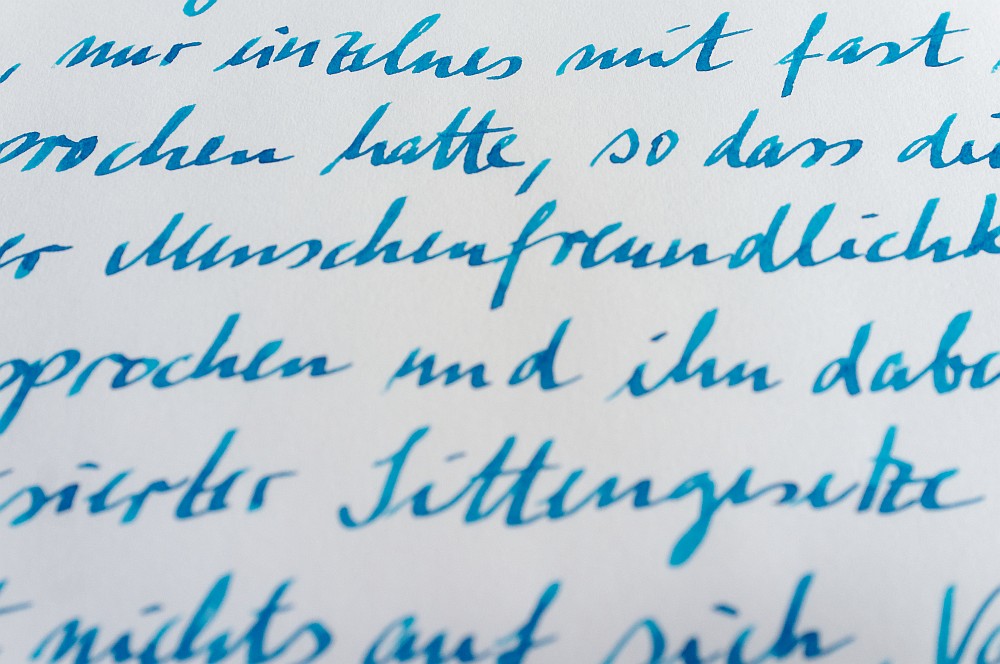 , nur einzelnes mit fast
sprochen hatte, so dass die
er Menschenfreundlichk
sprochen und ihn dabe
sierter Sittengesetze
nichts auf sich. Vo